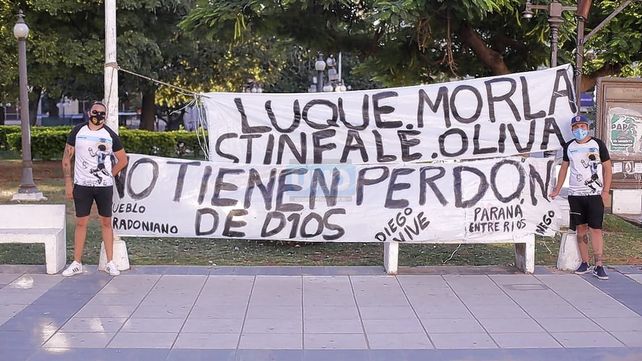 LUQUE. MORLA
STINFALE. OLIVA
NO TIENEN PERDÓN
DE D1OS
UEBLO
RADONIANO
DIEGO
VIVE
PARANÁ
ENTRE RIOS